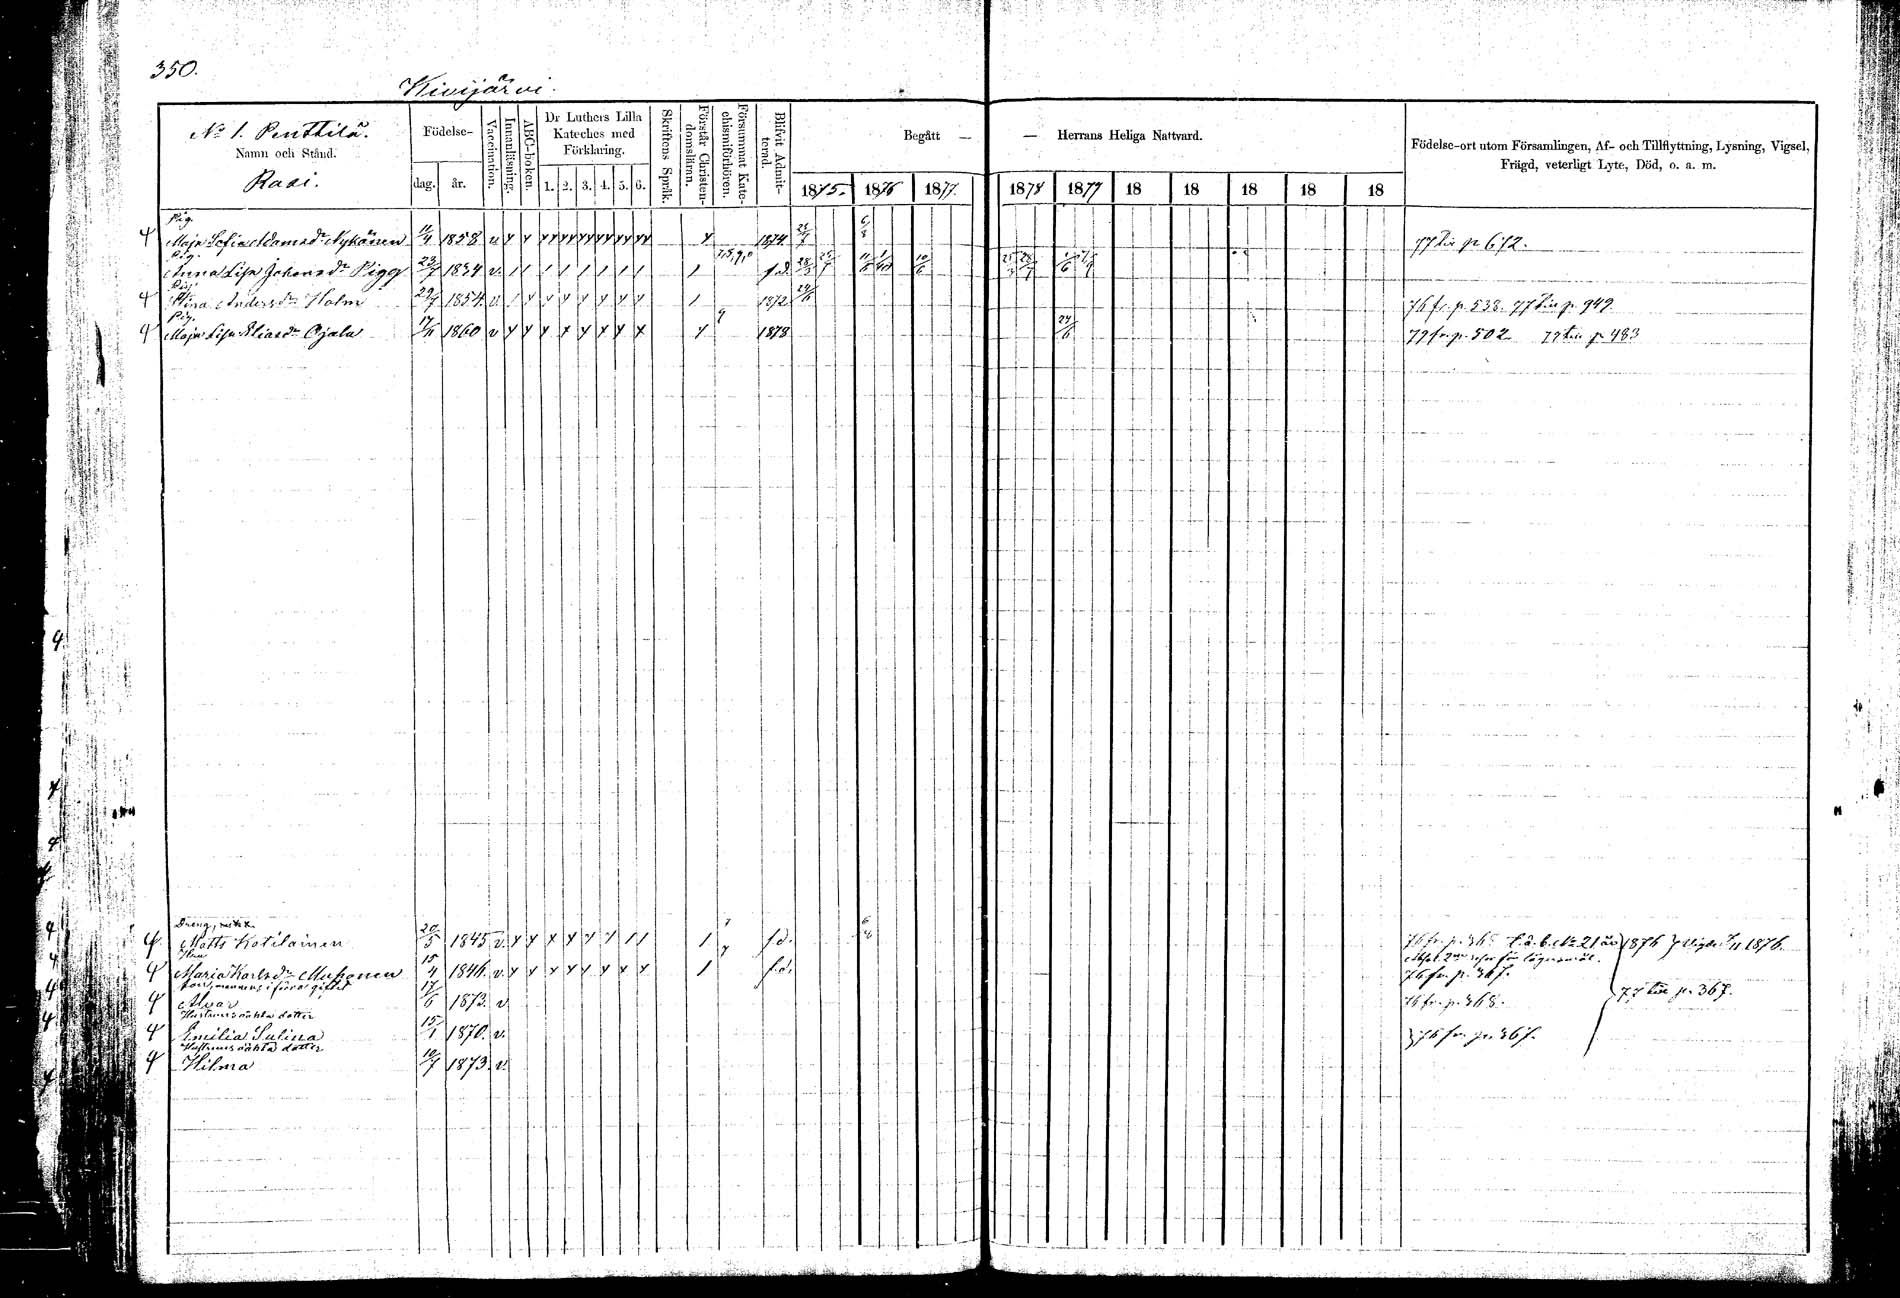 350.
Kivijärvi.
No 1. Penttilä.
Namn och Stånd.
Raai.
Födelse-
dag. år.
Vaccination.
Innanläsning.
ABC-boken.
Dr Luthers Lilla
Kateches med
Förklaring.
1. 2. 3. 4. 5. 6.
Skriftens Språk.
Förstår Christen-
domsläran.
Försummat Kate-
chismiförhören.
Blifvit Admit-
terad.
Begått — — Herrans Heliga Nattvard.
1875. 1876 1877. 1878 1879 18 18 18 18 18
Födelse-ort utom Församlingen, Af- och Tillflyttning, Lysning, Vigsel,
Frägd, veterligt Lyte, Död, o. a. m.
Pig.
Maja Sofia Adamsdr Nykänen 11/4 1858 v 1874 77 till p 672.
Pig.
Anna Lisa Johansdr Pigg 23/7 1834 v. f.d.
Pig.
Stina Andersdr Holm 29/9 1854 v. 1872 76 fr. p. 538. 77 till p. 949.
Pig.
Maja Lisa Eliasdr Ojala 17/11 1860 v 1878 24/6 79 fr. p. 502 79 till p 483
Dreng,
Matts Kotilainen 20/5 1845 v. f.d. 76 fr. p. 368 1876 Vigde 1876.
Maria Karlsdr Muhonen 15/4 1846 v. f.d. 76 fr. p. 367.
Son, mannens i förra giftet
Alvar 17/6 1873. v 76 fr. p. 368. 77 till p. 367.
Hustruns oäkta dotter
Emilia Sulina 15/1 1870. v. 76 fr. p. 367.
Hustruns oäkta dotter
Hilma 10/7 1873. v.